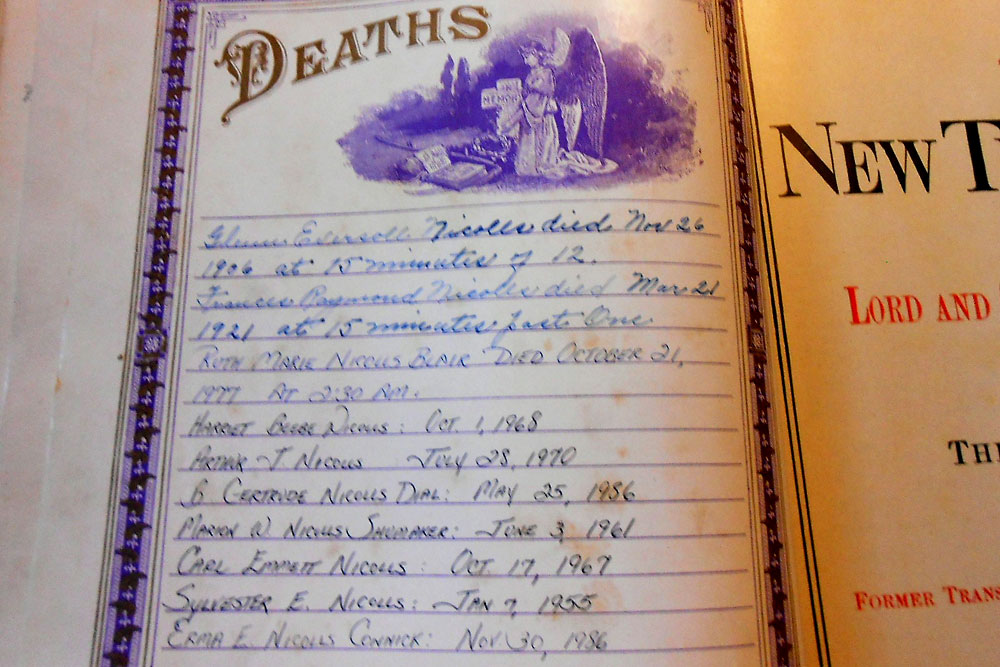 DEATHS
MEMORY
Glenn Eversoll Nicolls died Nov 26
1906 at 15 minutes of 12.
Frances Raymond Nicolls died Mar 21
1921 at 15 minutes past One
RUTH MARIE NICOLLS BLAIR DIED OCTOBER 21,
1977 AT 2:30 AM.
HARRIET BEEBE NICOLLS: OCT. 1, 1968
ARTHUR J. NICOLLS JULY 28, 1970
B GERTRUDE NICOLLS DIAL: MAY 25, 1986
MARION W NICOLLS SHUMAKER: JUNE 3, 1961
CARL EMMETT NICOLLS: OCT 17, 1967
SYLVESTER E. NICOLLS: JAN 7, 1955
ERMA E. NICOLLS CONNICK: NOV 30, 1986
NEW
LORD AND
FORMER